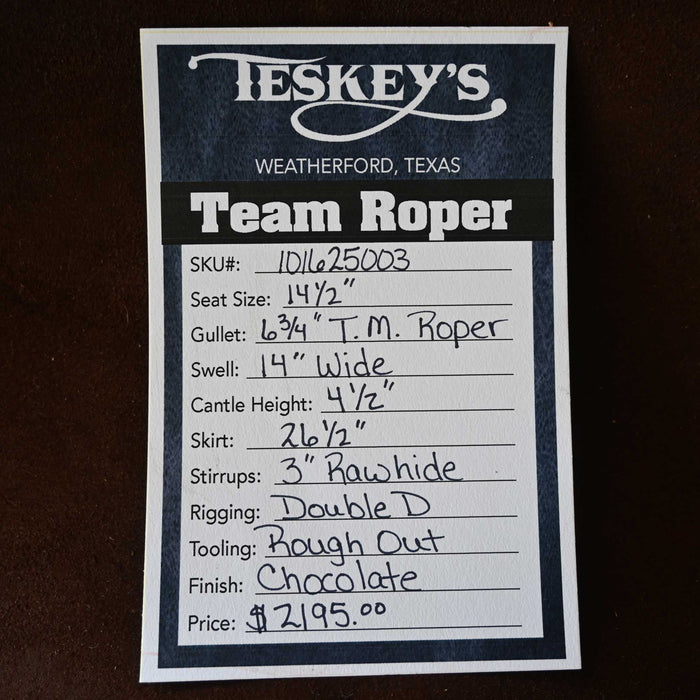 TESKEY'S
WEATHERFORD, TEXAS
Team Roper
SKU#: 101625003
Seat Size: 14 1/2"
Gullet: 6 3/4" T.M. Roper
Swell: 14" Wide
Cantle Height: 4 1/2"
Skirt: 26 1/2"
Stirrups: 3" Rawhide
Rigging: Double D
Tooling: Rough Out
Finish: Chocolate
Price: $2195.00